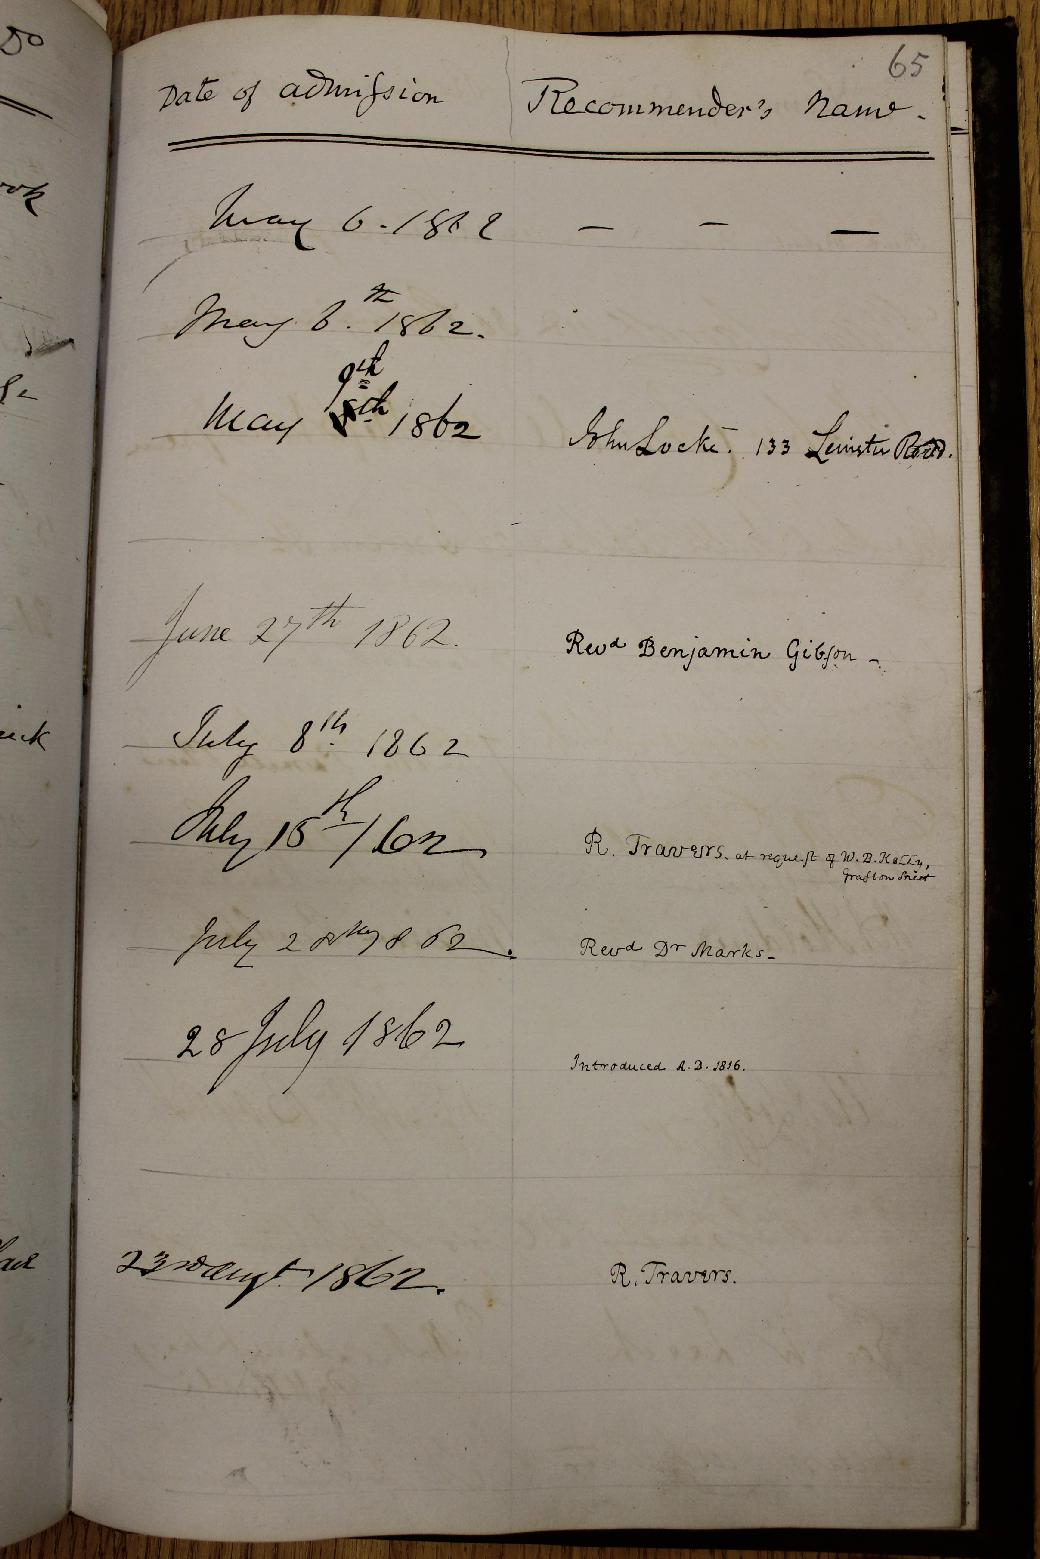 65
Date of admission Recommender's Name.
May 6. 1862 — — —
May 6.th 1862.
9th
May 8th 1862 John Locke. 133 Leinster Road.
June 27th 1862. Revd Benjamin Gibson -
July 8th 1862
July 15th/62 R. Travers. at request of W. B. Kelly,
Grafton Street
July 28 1862. Revd Dr Marks-
28 July 1862
Introduced A.D. 1816.
23rd Augt 1862. R. Travers.